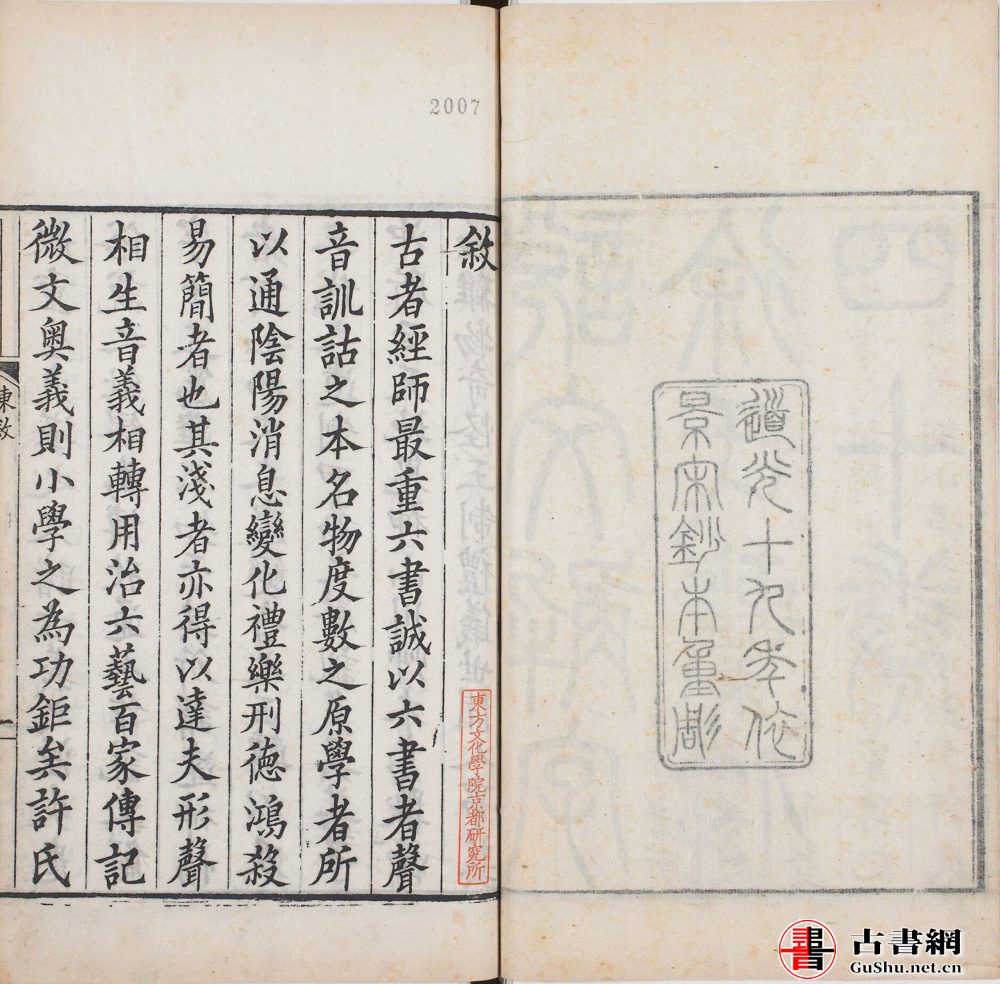 道光十九年依
景宋鈔本重彫
2007
敘
古者經師最重六書誠以六書者聲
音訓詁之本名物度數之原學者所
以通陰陽消息變化禮樂刑德鴻殺
易簡者也其淺者亦得以達夫形聲
相生音義相轉用治六藝百家傳記
微文奧義則小學之為功鉅矣許氏
東方文化學院京都研究所
古書網
GuShu.net.cn